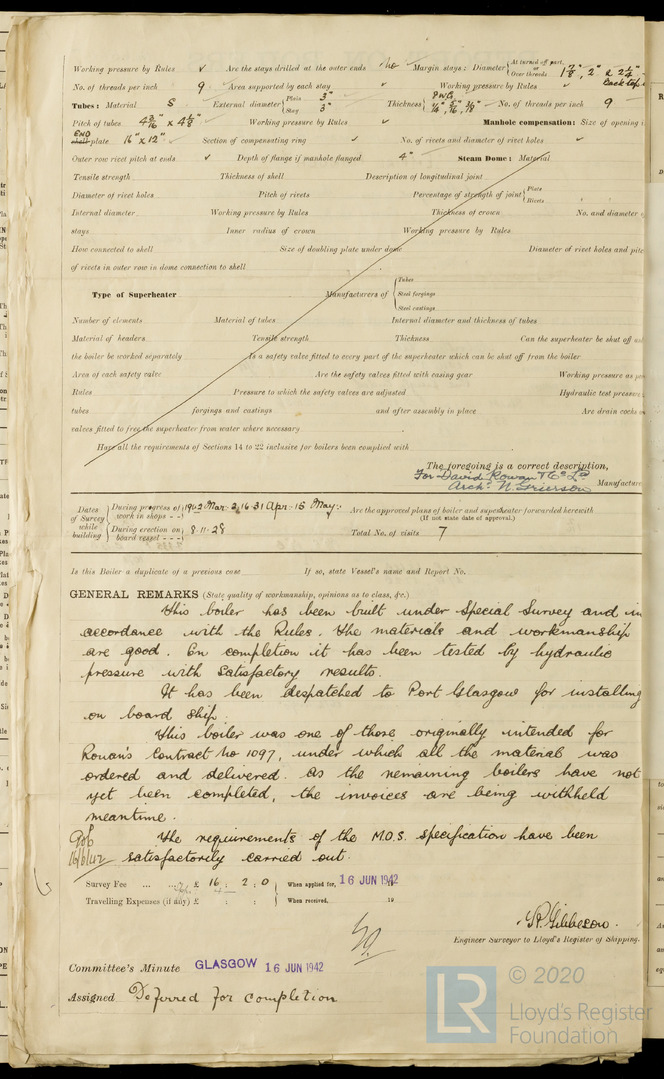 Working pressure by Rules ✓ Are the stays drilled at the outer ends No Margin stays: Diameter { At turned off part, or Over threads 1 7/8", 2" & 2 1/4" Back top
No. of threads per inch 9 Area supported by each stay Working pressure by Rules
Tubes: Material S External diameter { Plain 3" Stay 3" Thickness No. of threads per inch 9
Pitch of tubes 4 3/16" x 4 1/8" Working pressure by Rules Manhole compensation: Size of opening i
END shell plate 16" x 12" Section of compensating ring No. of rivets and diameter of rivet holes
Outer row rivet pitch at ends Depth of flange if manhole flanged 4" Steam Dome: Material
Tensile strength Thickness of shell Description of longitudinal joint
Diameter of rivet holes Pitch of rivets Percentage of strength of joint { Plate Rivets
Internal diameter Working pressure by Rules Thickness of crown No. and diameter
stays Inner radius of crown Working pressure by Rules
How connected to shell Size of doubling plate under dome Diameter of rivet holes and pitc
of rivets in outer row in dome connection to shell
Type of Superheater Manufacturers of { Tubes Steel forgings Steel castings
Number of elements Material of tubes Internal diameter and thickness of tubes
Material of headers Tensile strength Thickness Can the superheater be shut off
the boiler be worked separately Is a safety valve fitted to every part of the superheater which can be shut off from the boiler
Area of each safety valve Are the safety valves fitted with easing gear Working pressure as
Rules Pressure to which the safety valves are adjusted Hydraulic test pressure
tubes forgings and castings and after assembly in place Are drain cocks
valves fitted to free the superheater from water where necessary
Have all the requirements of Sections 14 to 22 inclusive for boilers been complied with
The foregoing is a correct description,
For David Rowan & Co Ld
Archd. N. Grierson Manufacture
Dates of Survey while building { During progress of work in shops - - 1942 Mar. 2, 16. 31 Apr. 15 May: Are the approved plans of boiler and superheater forwarded herewith
(If not state date of approval.)
During erection on board vessel - - - 8.11.28 Total No. of visits 7
Is this Boiler a duplicate of a previous case If so, state Vessel's name and Report No.
GENERAL REMARKS (State quality of workmanship, opinions as to class, &c.)
This boiler has been built under Special Survey and in
accordance with the Rules. The materials and workmanship
are good. On completion it has been tested by hydraulic
pressure with satisfactory results.
It has been despatched to Port Glasgow for installing
on board ship.
This boiler was one of those originally intended for
Rowan's Contract No 1097, under which all the material was
ordered and delivered. As the remaining boilers have not
yet been completed, the invoices are being withheld
meantime.
The requirements of the M.O.S. specification have been
16/6/42 satisfactorily carried out.
Survey Fee ... ... £ 16 : 2 : 0 When applied for, 16 JUN 1942
Travelling Expenses (if any) £ : : When received, 19
Engineer Surveyor to Lloyd's Register of Shipping.
Committee's Minute GLASGOW 16 JUN 1942
Assigned Deferred for completion
LR © 2020
Lloyd's Register
Foundation